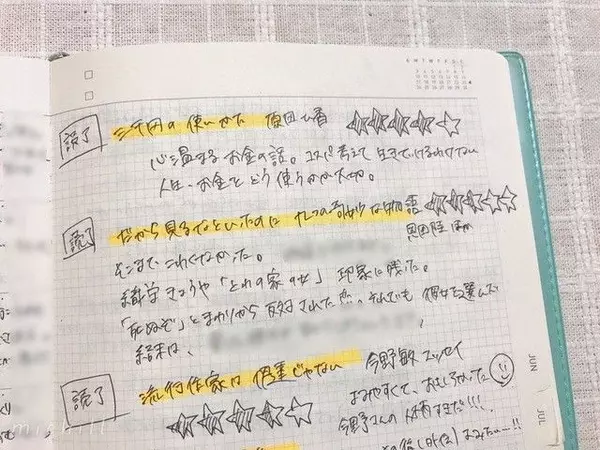 読了 三千円の使いかた 原田ひ香
心温まるお金の話。コスパ考えて生きていけるわけない
人生、お金をどう使うかが大切。
読了 だから見るなといったのに 九つの奇妙な物語
恩田陸 ほか
そこまでこわくなかった。
織守きょうや「とわの家の女」印象に残った。
「死ぬぞ」とまわりから反対された恋、それでも彼女を選んだ
結果は、
読了 流行作家は伊達じゃない 今野敏エッセイ
よみやすくて、おもしろかった
今野さんの人柄すきだ!!!
よみたいー!!
JUN
JUL